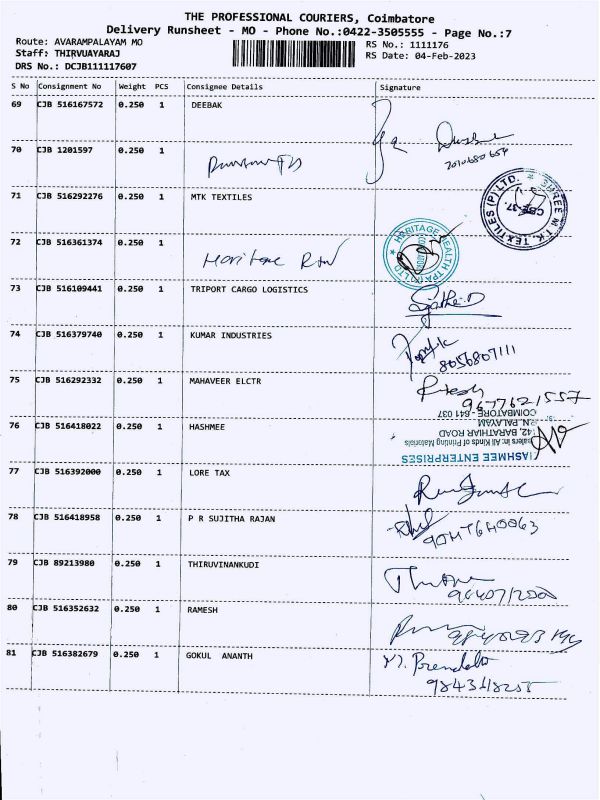 THE PROFESSIONAL COURIERS, Coimbatore
Delivery Runsheet - MO - Phone No.:0422-3505555 - Page No.:7
Route: AVARAMPALAYAM MO RS No.: 1111176
Staff: THIRVUAYARAJ RS Date: 04-Feb-2023
DRS No.: DCJB111117607
S No Consignment No Weight PCS Consignee Details Signature
69 CJB 516167572 0.250 1 DEEBAK
70 CJB 1201597 0.250 1
71 CJB 516292276 0.250 1 MTK TEXTILES
SHREE M.T.K. TEXTILES (P) LTD. * CBE-37
72 CJB 516361374 0.250 1
HARITAGE HEALTH (P) LTD
73 CJB 516109441 0.250 1 TRIPORT CARGO LOGISTICS
74 CJB 516379740 0.250 1 KUMAR INDUSTRIES
8056807111
75 CJB 516292332 0.250 1 MAHAVEER ELCTR
Ritesh
9677621557
76 CJB 516418022 0.250 1 HASHMEE
HASHMEE ENTERPRISES
Dealers in: All Kinds of Printing Materials
42, BARATHIAR ROAD
P.N. PALAYAM
COIMBATORE - 641 037
77 CJB 516392000 0.250 1 LORE TAX
78 CJB 516418958 0.250 1 P R SUJITHA RAJAN
79 CJB 89213980 0.250 1 THIRUVINANKUDI
80 CJB 516352632 0.250 1 RAMESH
81 CJB 516382679 0.250 1 GOKUL ANANTH